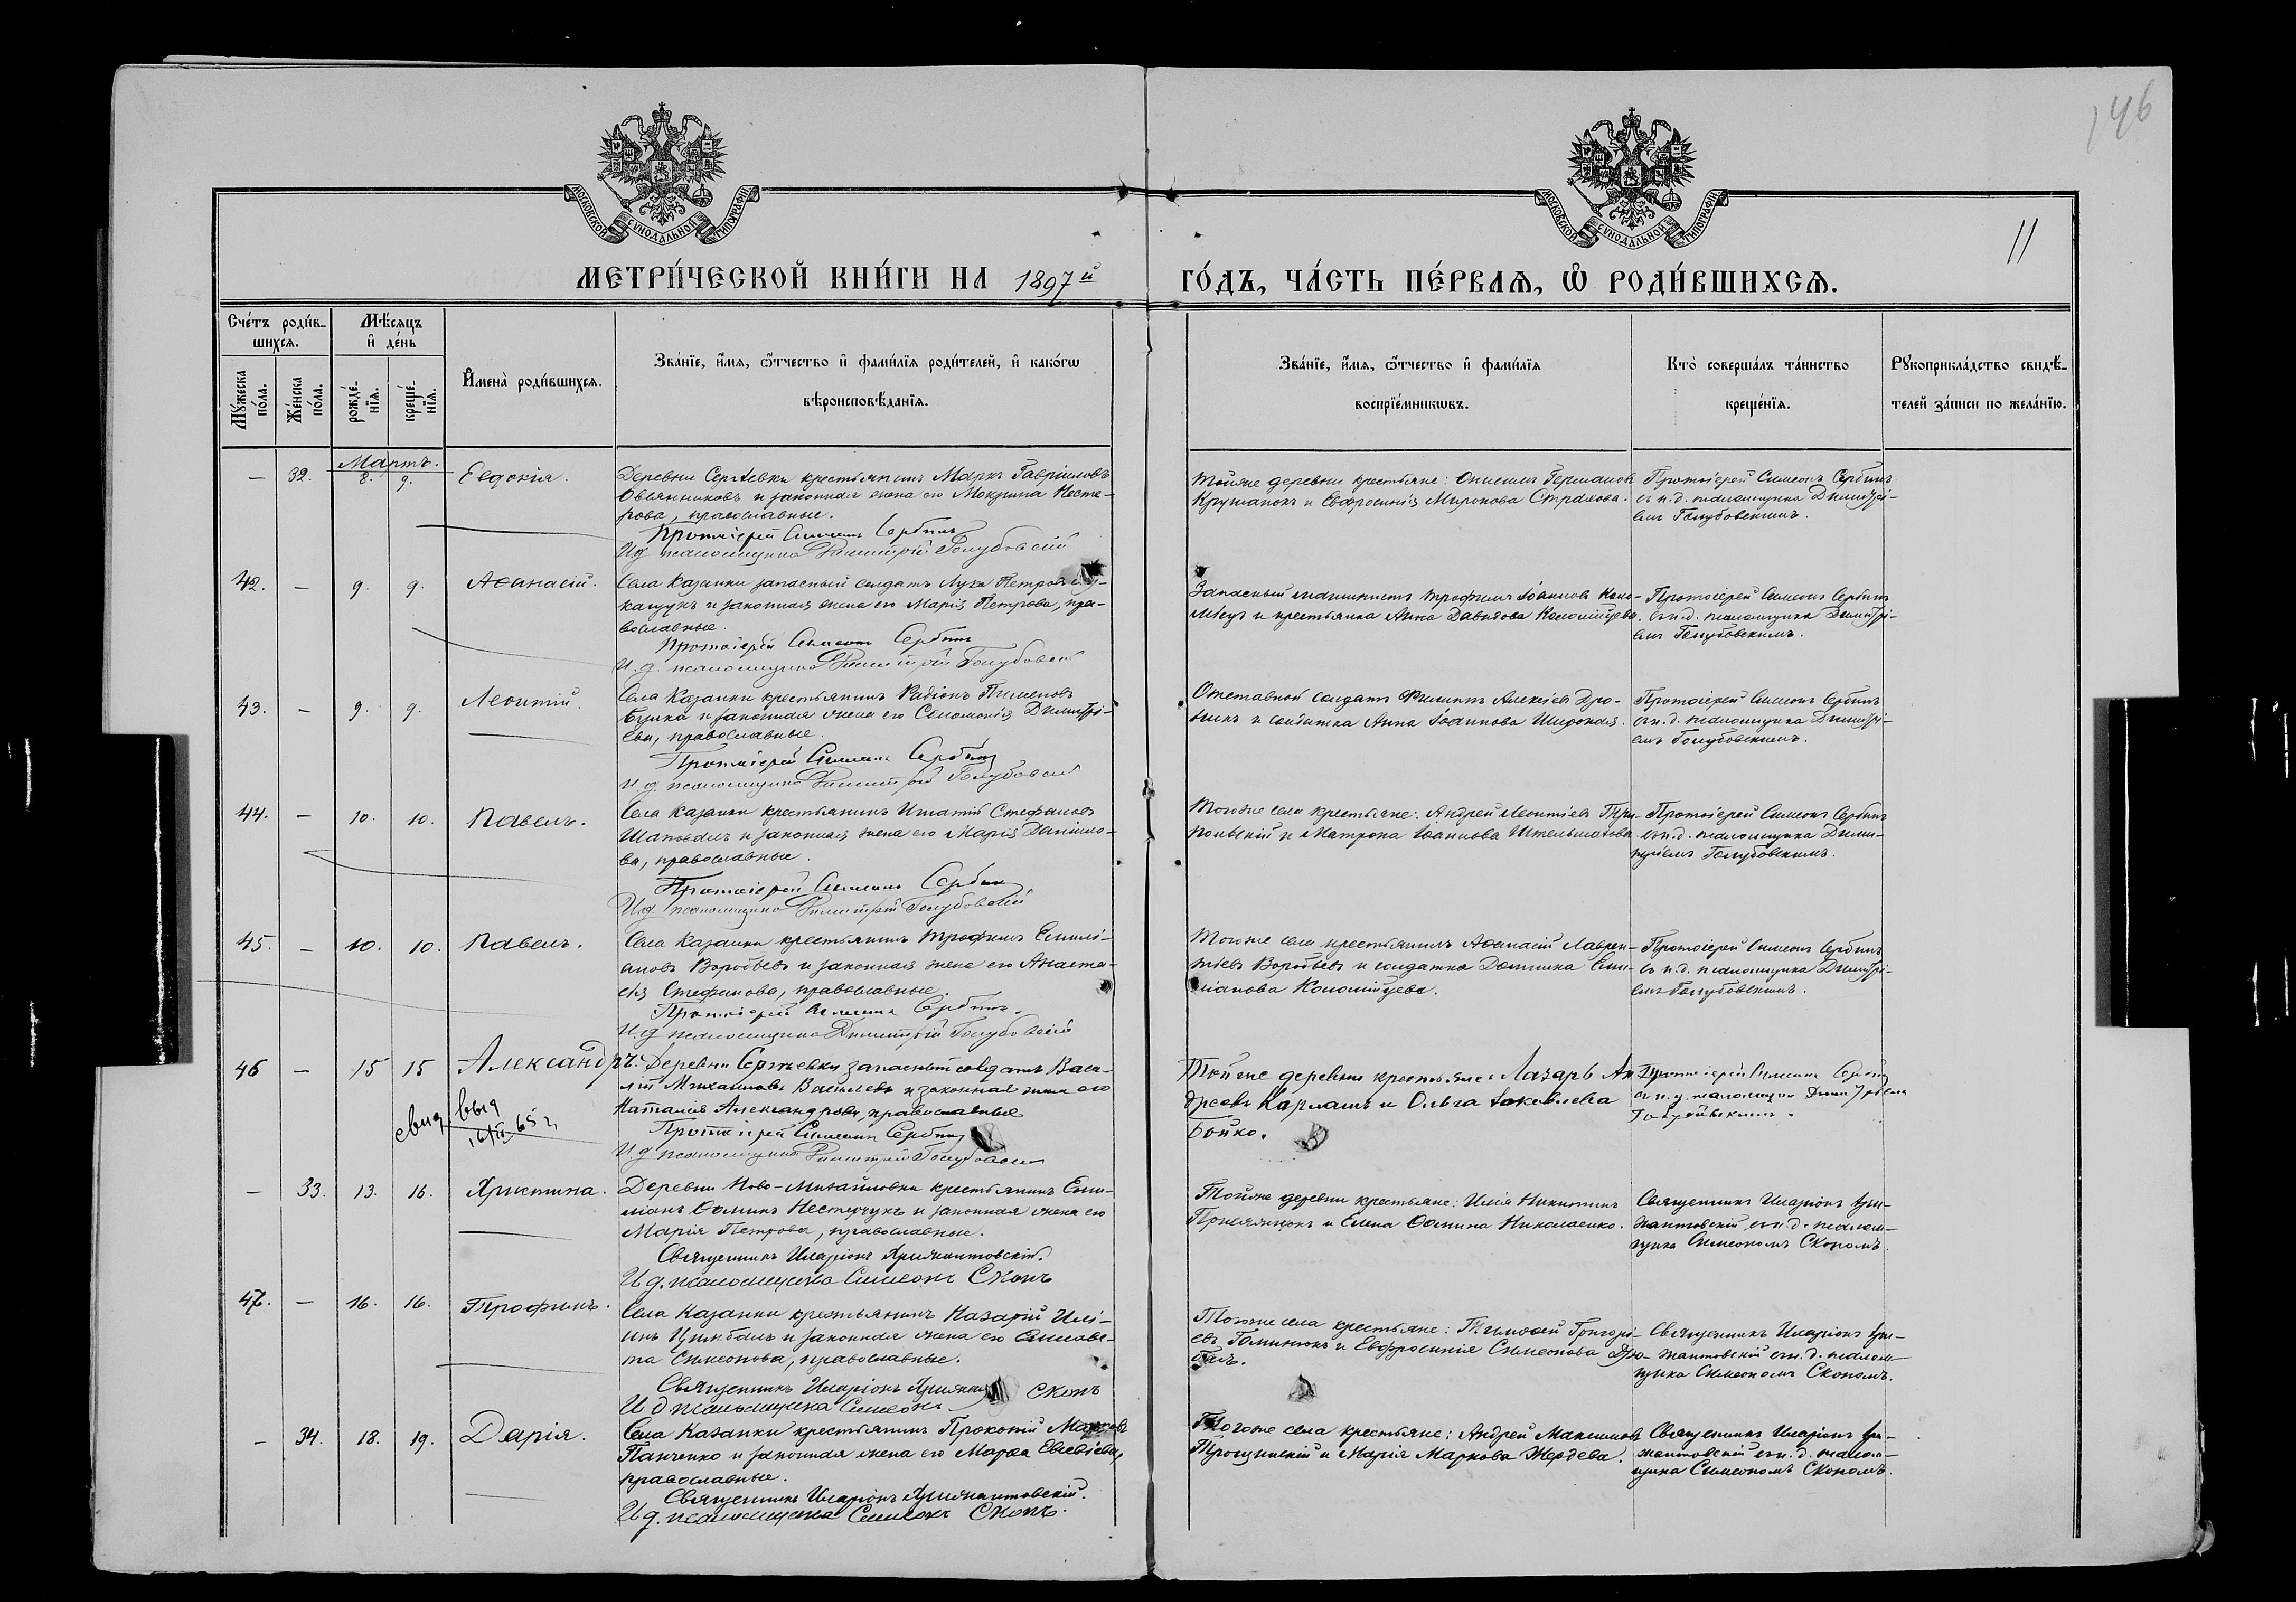 146
11
МОСКОВСКОЙ СѴНОДАЛЬНОЙ ТИПОГРАФІИ
МОСКОВСКОЙ СѴНОДАЛЬНОЙ ТИПОГРАФІИ
МЕТРИ́ЧЕСКОЙ КНИ́ГИ НА 1897й
ГО́ДЪ, ЧА́СТЬ ПЕ́РВАѦ, Ѡ҆ РОДИ́ВШИХСѦ.
Сче́тъ роди́в-
шихсѧ.
Мꙋ́жеска
по́ла.
Же́нска
по́ла.
Мѣ́сѧцъ
и҆ де́нь
рожде́-
нїѧ.
креще́-
нїѧ.
И҆мена̀ роди́вшихсѧ.
Зва́нїе, и҆́мѧ, ѻ҆́тчество и҆ фами́лїѧ роди́телей, и҆ како́гѡ
вѣроисповѣ́данїѧ.
Зва́нїе, и҆́мѧ, ѻ҆́тчество и҆ фами́лїѧ
воспрїе́мникѡвъ.
Кто̀ соверша́лъ та́инство
креще́нїѧ.
Рꙋкоприкла́дство свидѣ́-
телей за́писи по жела́нїю.
Мартъ.
— 32. 8. 9. Евдокія.
Деревни Сергѣевки крестьянинъ Маркъ Гавріиловъ
Овсянниковъ и законная жена его Мокрина Несте-
рова, православные.
Протоіерей Симеонъ Сербинъ
И.д. псаломщика Димитрій Голубовскій
Тойже деревни крестьяне: Онисимъ Германовъ
и Евфросинія Миронова Страхова.
Протоіерей Симеонъ Сербинъ
съ и.д. псаломщика Димитрі-
емъ Голубовскимъ.
42. — 9. 9. Аѳанасій.
Села Казанки запасный солдатъ Лука Петровъ
и законная жена его Марія Петрова, пра-
вославные.
Протоіерей Симеонъ Сербинъ
И.д. псаломщика Димитрій Голубовскій
Запасный Трофимъ Іоанновъ Коло-
міецъ и крестьянка Анна Давидова Коломійцева.
Протоіерей Симеонъ Сербинъ
съ и.д. псаломщика Димитрі-
емъ Голубовскимъ.
43. — 9. 9. Леонтій.
Села Казанки крестьянинъ Родіонъ Пименовъ
и законная жена его Соломонія Димитрі-
ева, православные.
Протоіерей Симеонъ Сербинъ
И.д. псаломщика Димитрій Голубовскій
Отставной солдатъ Филиппъ Алексіевъ
и солдатка Анна Іоаннова Широкая.
Протоіерей Симеонъ Сербинъ
съ и.д. псаломщика Димитрі-
емъ Голубовскимъ.
44. — 10. 10. Павелъ.
Села Казанки крестьянинъ Игнатій Стефановъ
Шаповалъ и законная жена его Марія Даніило-
ва, православные.
Протоіерей Симеонъ Сербинъ
И.д. псаломщика Димитрій Голубовскій
Тогоже села крестьяне: Андрей Леонтіевъ
и Матрона Іоаннова
Протоіерей Симеонъ Сербинъ
съ и.д. псаломщика Дими-
тріемъ Голубовскимъ.
45. — 10. 10. Павелъ.
Села Казанки крестьянинъ Трофимъ Емилі-
ановъ Воробьевъ и законная жена его Анаста-
сія Стефанова, православные.
Протоіерей Симеонъ Сербинъ.
И.д. псаломщика Димитрій Голубовскій
Тогоже села крестьянинъ Аѳанасій Лаврен-
тіевъ Воробьевъ и солдатка Домника Еми-
ліанова Коломійцева.
Протоіерей Симеонъ Сербинъ
съ и.д. псаломщика Димитрі-
емъ Голубовскимъ.
46 — 15 15 Александръ.
свид. выд
Деревни Сергѣевки запасный солдатъ Васи-
лій Михаиловъ Васильевъ и законная жена его
Наталія Александрова, православные
Протоіерей Симеонъ Сербинъ
И.д. псаломщика Димитрій Голубовскій
Тойже деревни крестьяне: Лазарь Ан
дреевъ Карлашъ и Ольга Іаковлева
Бойко.
Протоіерей Симеонъ Сербинъ
съ и.д. псаломщика Димитріемъ
Голубовскимъ.
— 33. 13. 16. Христина.
Деревни Ново-Михайловки крестьянинъ Еми-
ліанъ Ѳоминъ Нестерчукъ и законная жена его
Марія Петрова, православные.
Священникъ Иларіонъ Крижантовскій.
И.д. псаломщика Симеонъ Скопъ
Тойже деревни крестьяне: Илія Никитинъ
и Елена Ѳомина Николаенко.
Священникъ Иларіонъ Кри-
жантовскій съ и.д. псалом-
щика Симеономъ Скопомъ.
47. — 16. 16. Трофимъ.
Села Казанки крестьянинъ Назарій Илі-
инъ Цимбалъ и законная жена его Елисаве-
та Симеонова, православные.
Священникъ Иларіонъ
И.д псаломщика Симеонъ Скопъ
Тогоже села крестьяне: Тимоѳей Григорі-
евъ и Евфросинія Симеонова
Священникъ Иларіонъ Кри-
жантовскій съ и.д. псалом-
щика Симеономъ Скопомъ.
— 34. 18. 19. Дарія.
Села Казанки крестьянинъ Прокопій Марковъ
Панченко и законная жена его Марѳа Евсевіева,
православные.
Священникъ Иларіонъ Крижантовскій.
И.д. псаломщика Симеонъ Скопъ.
Тогоже села крестьяне: Андрей Максимовъ
Трощинскій и Марія Маркова Жердева.
Священникъ Иларіонъ Кри-
жантовскій съ и.д. псалом-
щика Симеономъ Скопомъ.